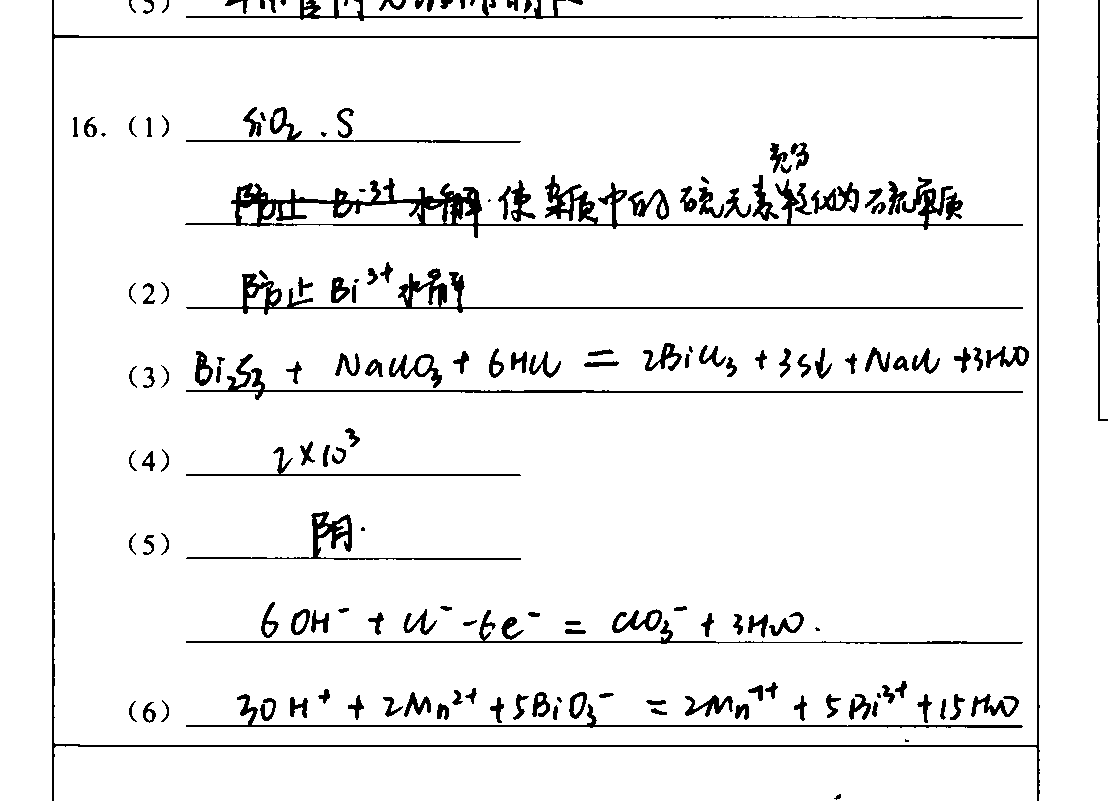 (5)
16. (1) SiO₂ . S
使杂质中的硫元素充分转化为硫单质
(2) 防止 Bi³⁺ 水解
(3) Bi₂S₃ + NaClO₃ + 6HCl = 2BiCl₃ + 3S↓ + NaCl + 3H₂O
(4) 2×10³
(5) 阴.
6OH⁻ + Cl⁻ -6e⁻ = ClO₃⁻ + 3H₂O.
(6) 30H⁺ + 2Mn²⁺ + 5BiO₃⁻ = 2Mn⁷⁺ + 5Bi³⁺ + 15H₂O